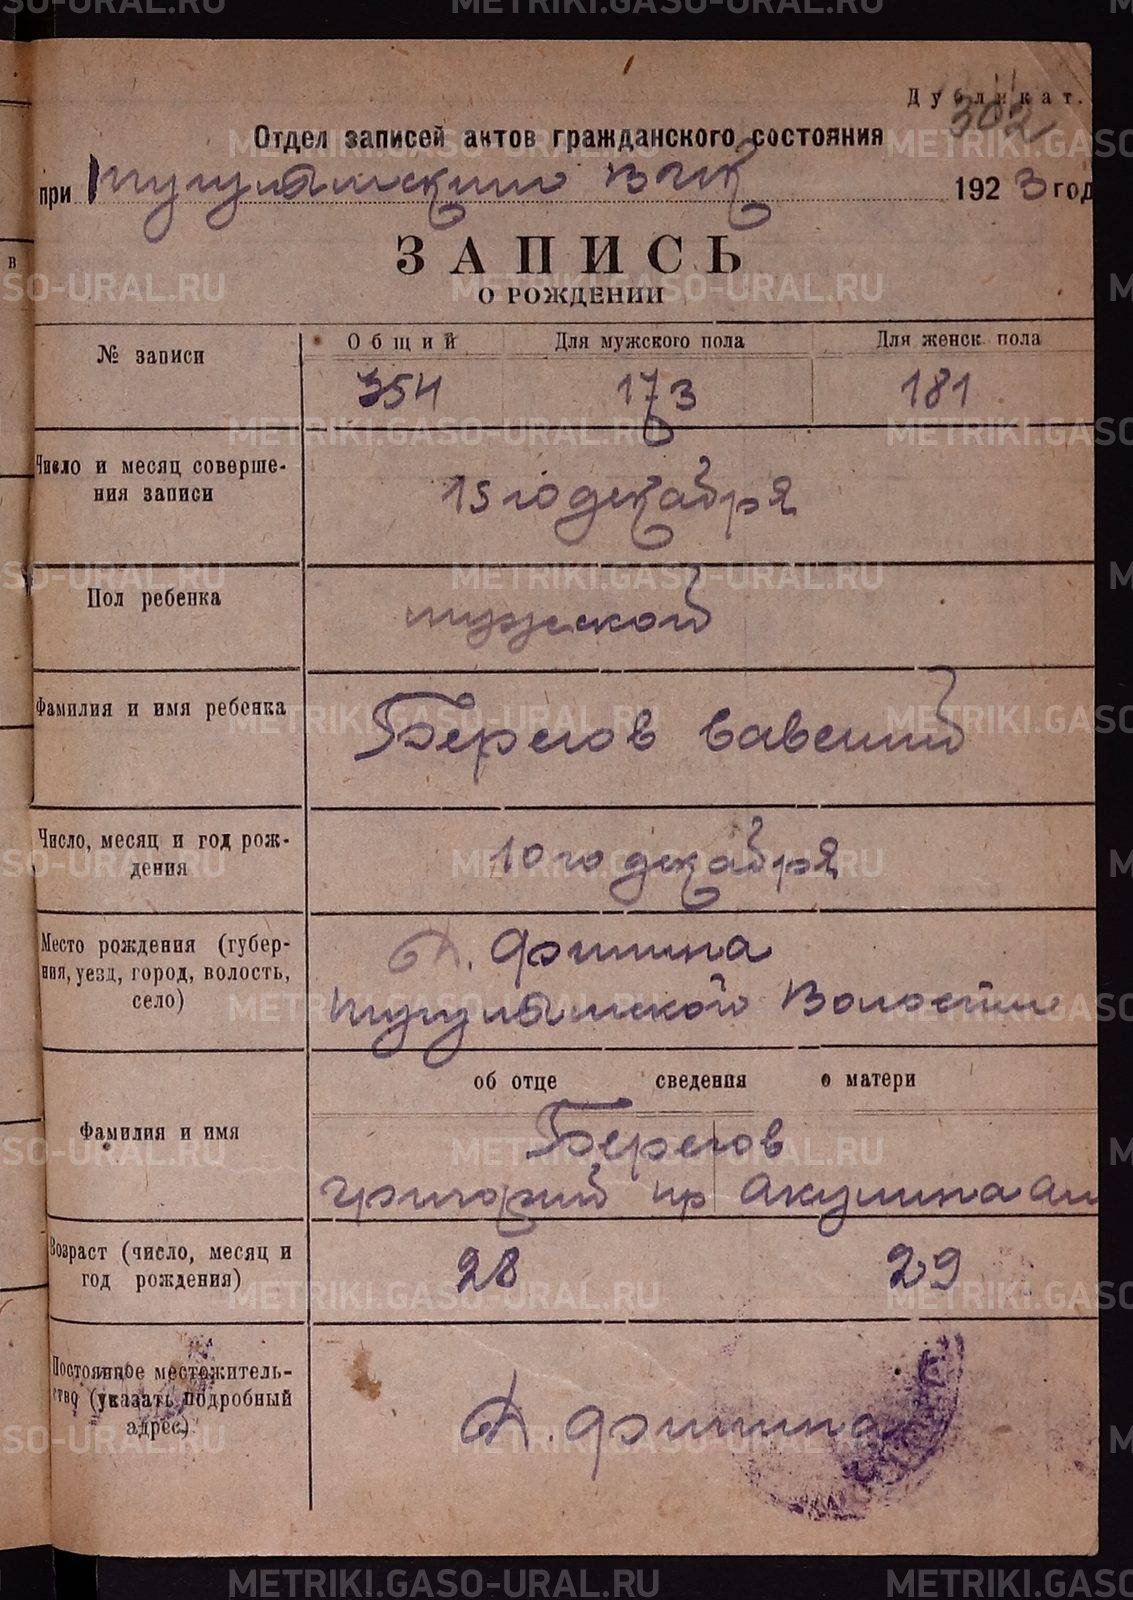 Дубликат.
302
Отдел записей актов гражданского состояния
при Тугулымским ВИК 1923 год
ЗАПИСЬ
О РОЖДЕНИИ
№ записи
Общий Для мужского пола Для женск. пола
354 173 181
Число и месяц соверше-
ния записи
15го декабря
Пол ребенка
мужской
Фамилия и имя ребенка
Берегов Савелий
Число, месяц и год рож-
дения
10го декабря
Место рождения (губер-
ния, уезд, город, волость,
село)
Д. Фомина
Тугулымской Волости
об отце сведения о матери
Фамилия и имя
Берегов
Григорий пр Акулина
Возраст (число, месяц и
год рождения)
28 29
Постоянное местожитель-
ство (указать подробный
адрес)
Д. Фомина
METRIKI.GASO-URAL.RU